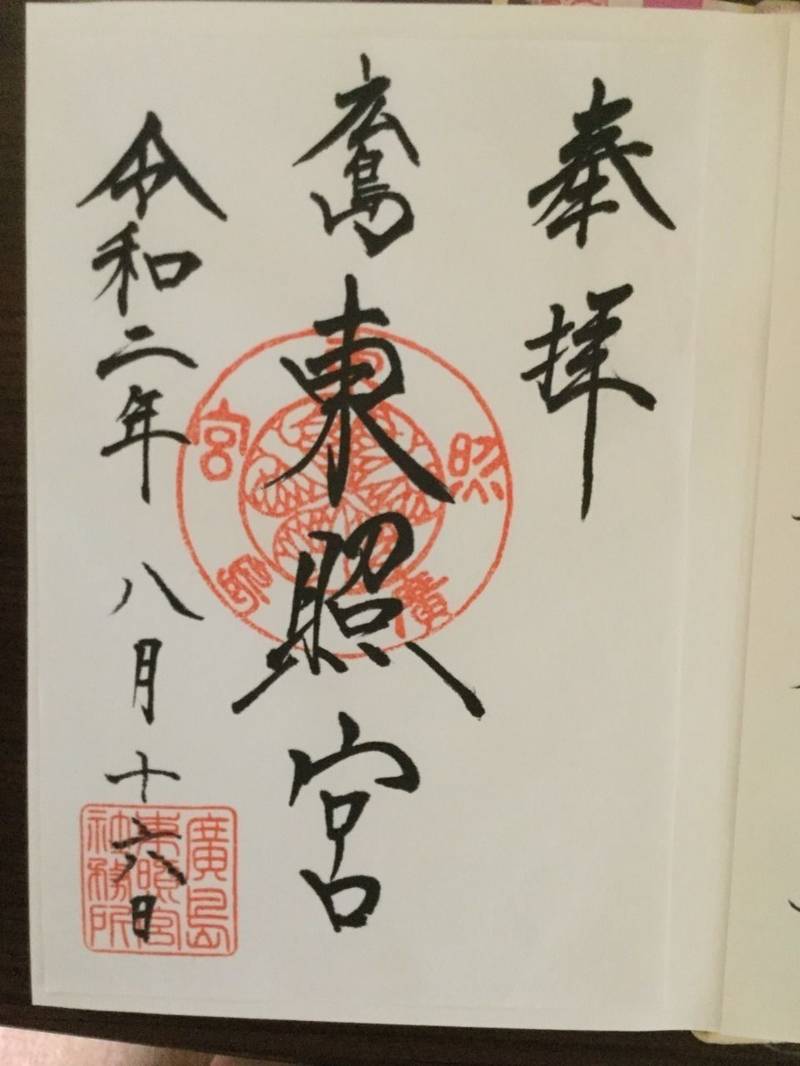 奉拝
広島東照宮
令和二年八月十六日
東照宮廣島
廣島東照宮社務所